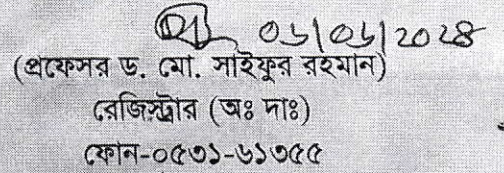 ০৬/০৬/২০২৪
(প্রফেসর ড. মো. সাইফুর রহমান)
রেজিস্ট্রার (অঃ দাঃ)
ফোন-০৫৩১-৬১৩৫৫